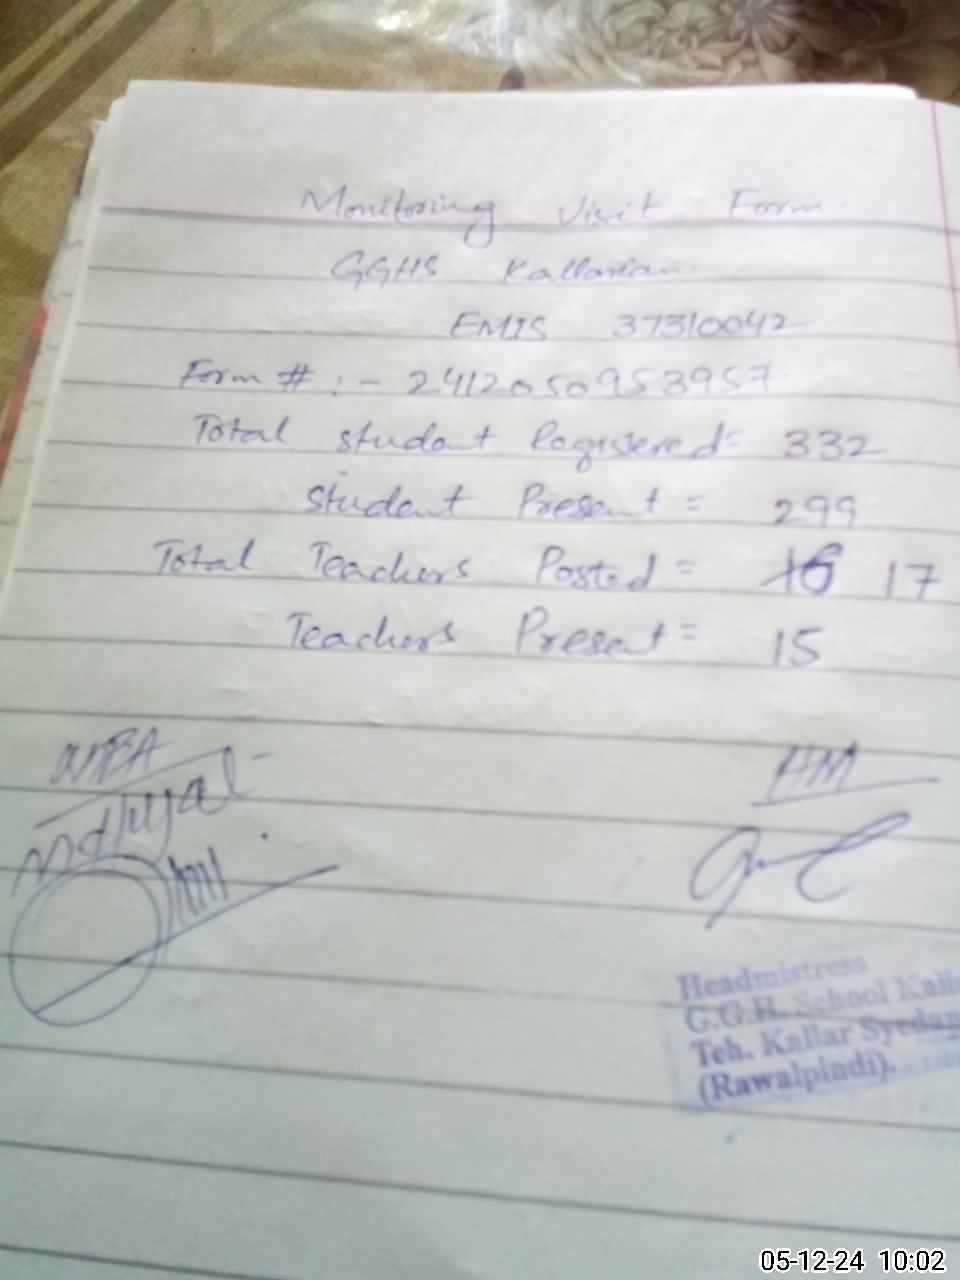 Monitoring Visit Form.
GGHS Kallarian.
EMIS 37310042
Form # :- 2412050953957
Total student Registered = 332
student Present = 299
Total Teachers Posted = 16 17
Teachers Present = 15
HM
Headmistress
G.G.H. School
Teh. Kallar Syedan
(Rawalpindi).
05-12-24 10:02